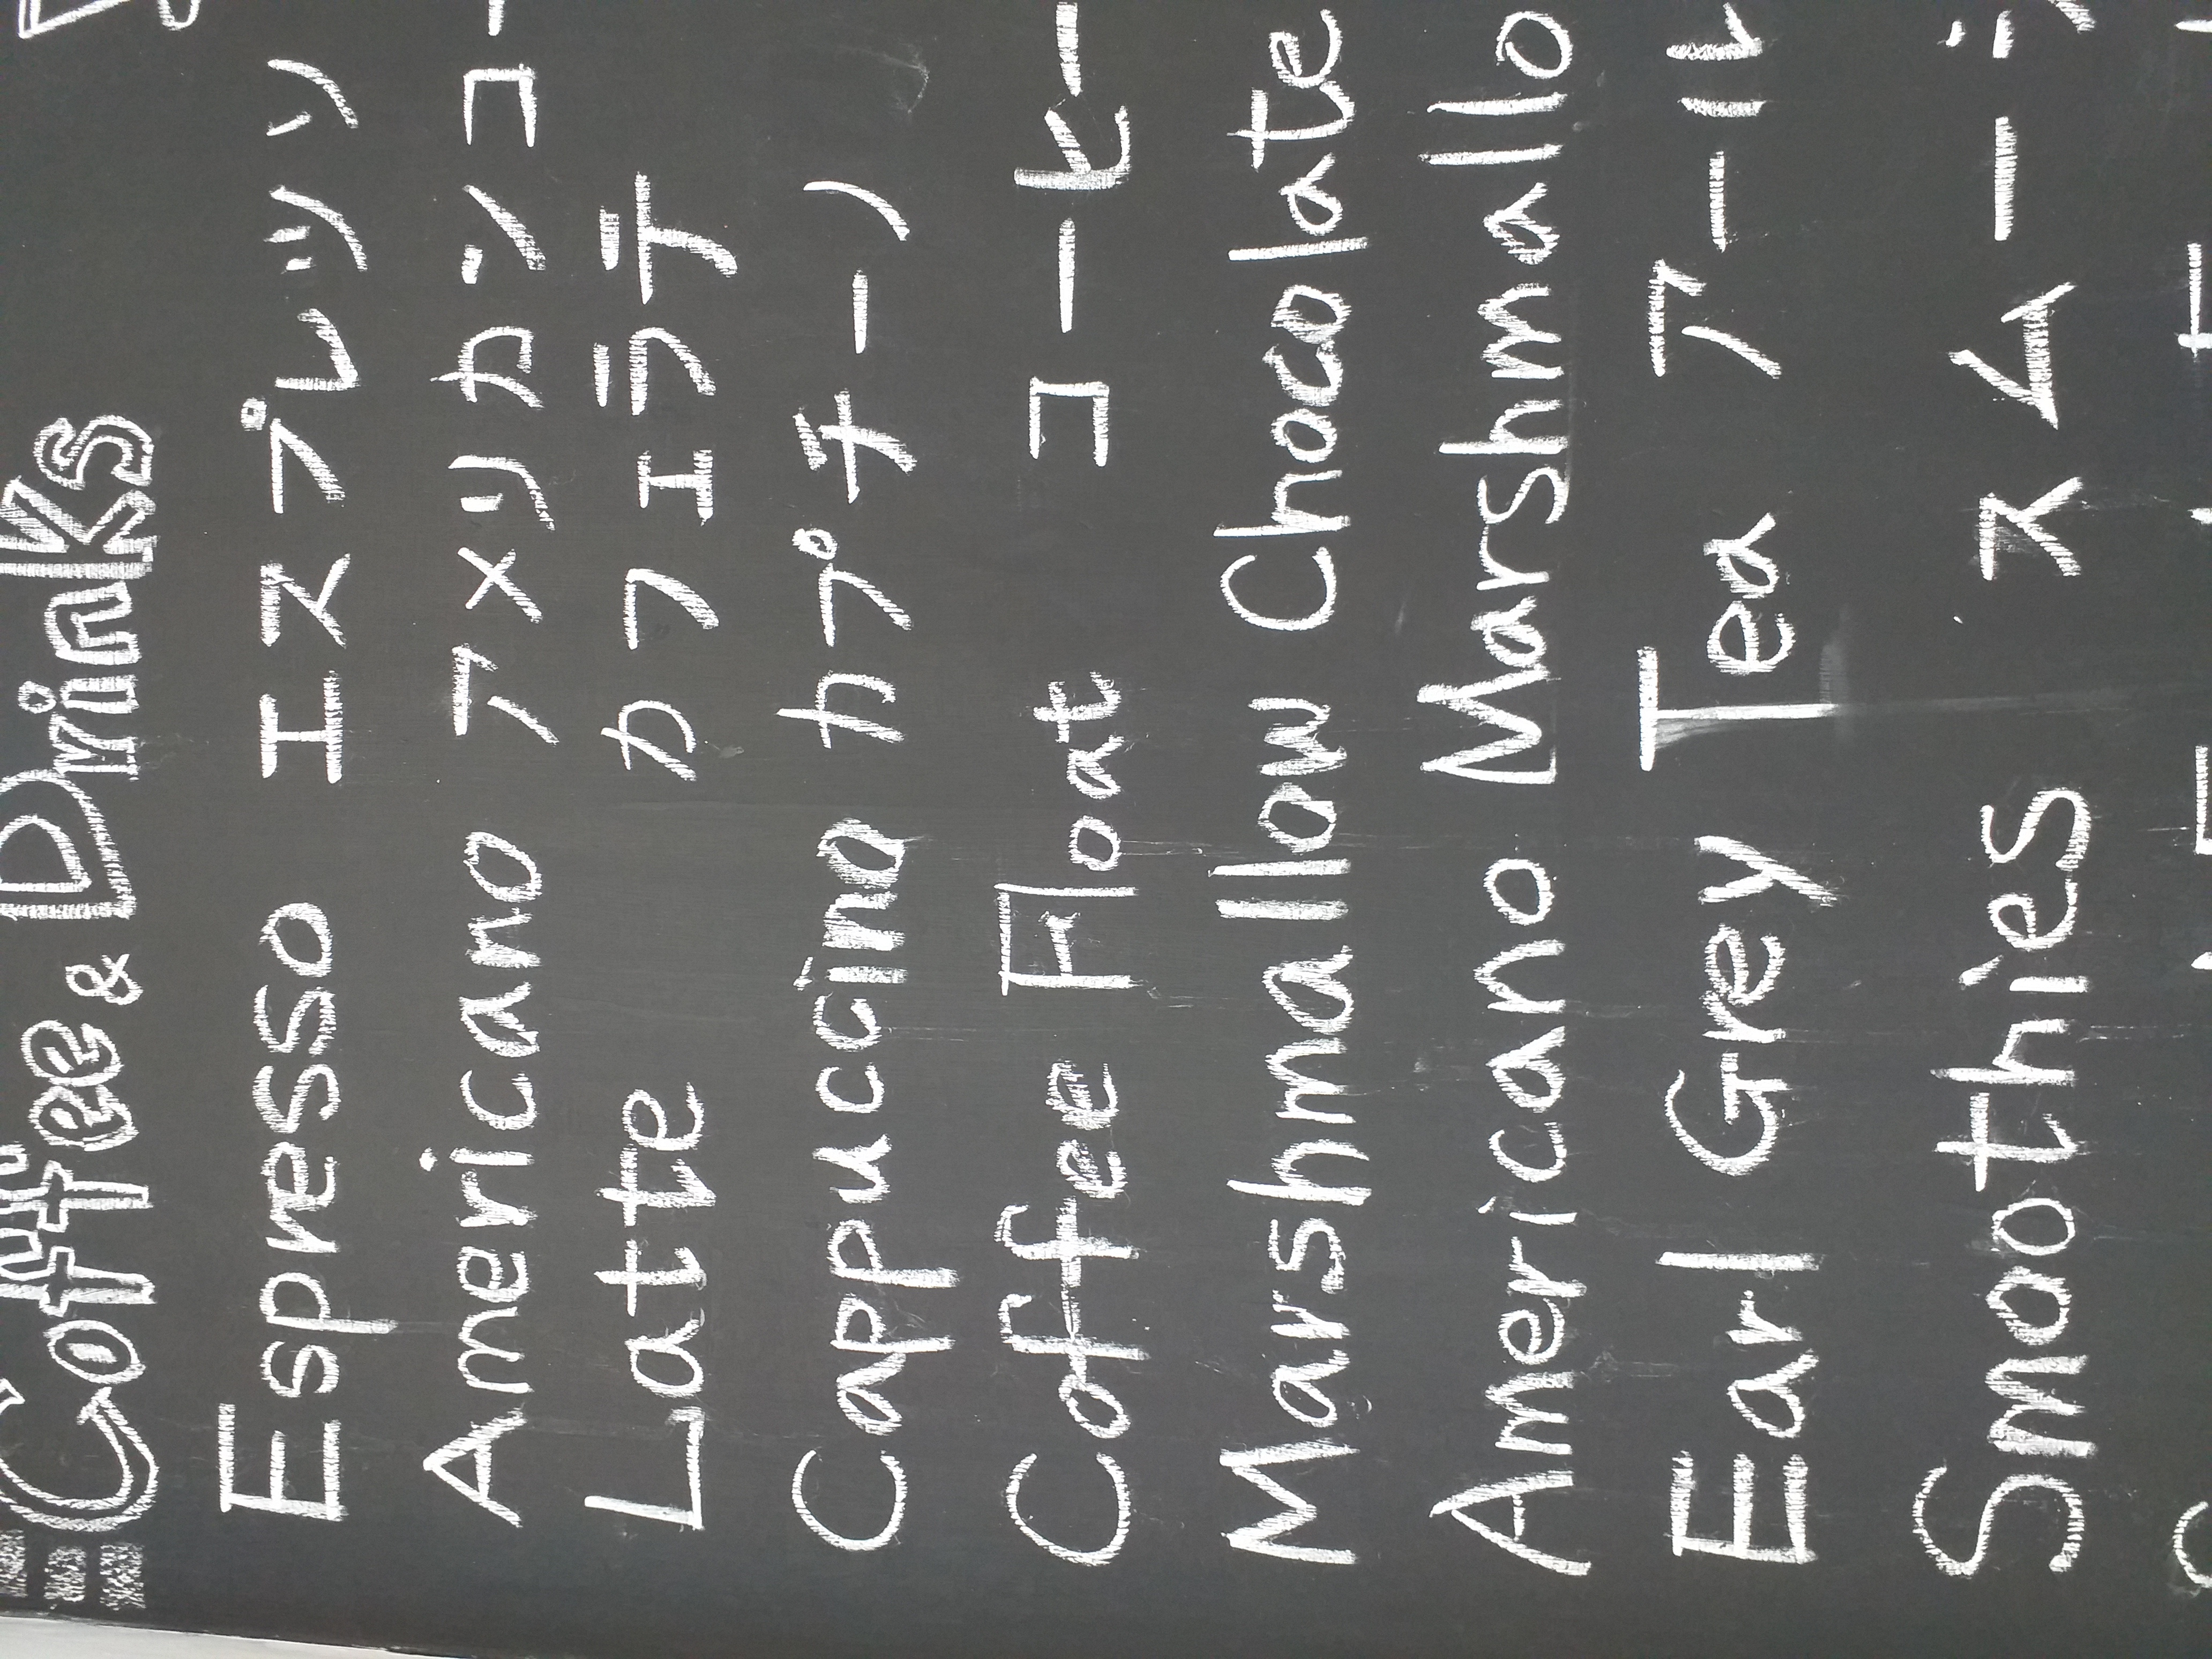 Coffee & Drinks
Espresso エスプレッソ
Americano アメリカンコー
Latte カフェラテ
Cappuccino カプチーノ
Coffee Float コーヒー
Marshmallow Chocolate
Americano Marshmallo
Earl Grey Tea アール
Smoothies スムー